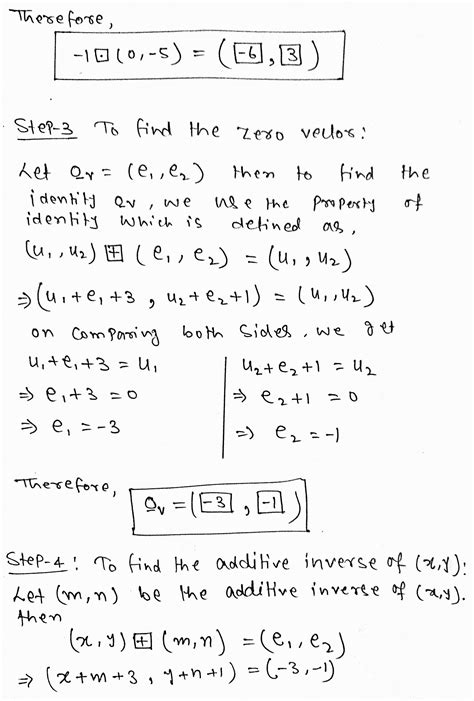 Therefore,
-1 ⊡ (0,-5) = (-6, 3)
Step-3 To find the zero vector:
Let 0ᵥ = (e₁, e₂) then to find the
identity 0ᵥ, we use the property of
identity which is defined as,
(u₁, u₂) ⊞ (e₁, e₂) = (u₁, u₂)
⇒ (u₁+e₁+3, u₂+e₂+1) = (u₁, u₂)
on comparing both sides, we get
u₁+e₁+3 = u₁
⇒ e₁+3 = 0
⇒ e₁ = -3
u₂+e₂+1 = u₂
⇒ e₂+1 = 0
⇒ e₂ = -1
Therefore,
0ᵥ = (-3, -1)
Step-4: To find the additive inverse of (x,y):
Let (m,n) be the additive inverse of (x,y).
then
(x,y) ⊞ (m,n) = (e₁, e₂)
⇒ (x+m+3, y+n+1) = (-3,-1)